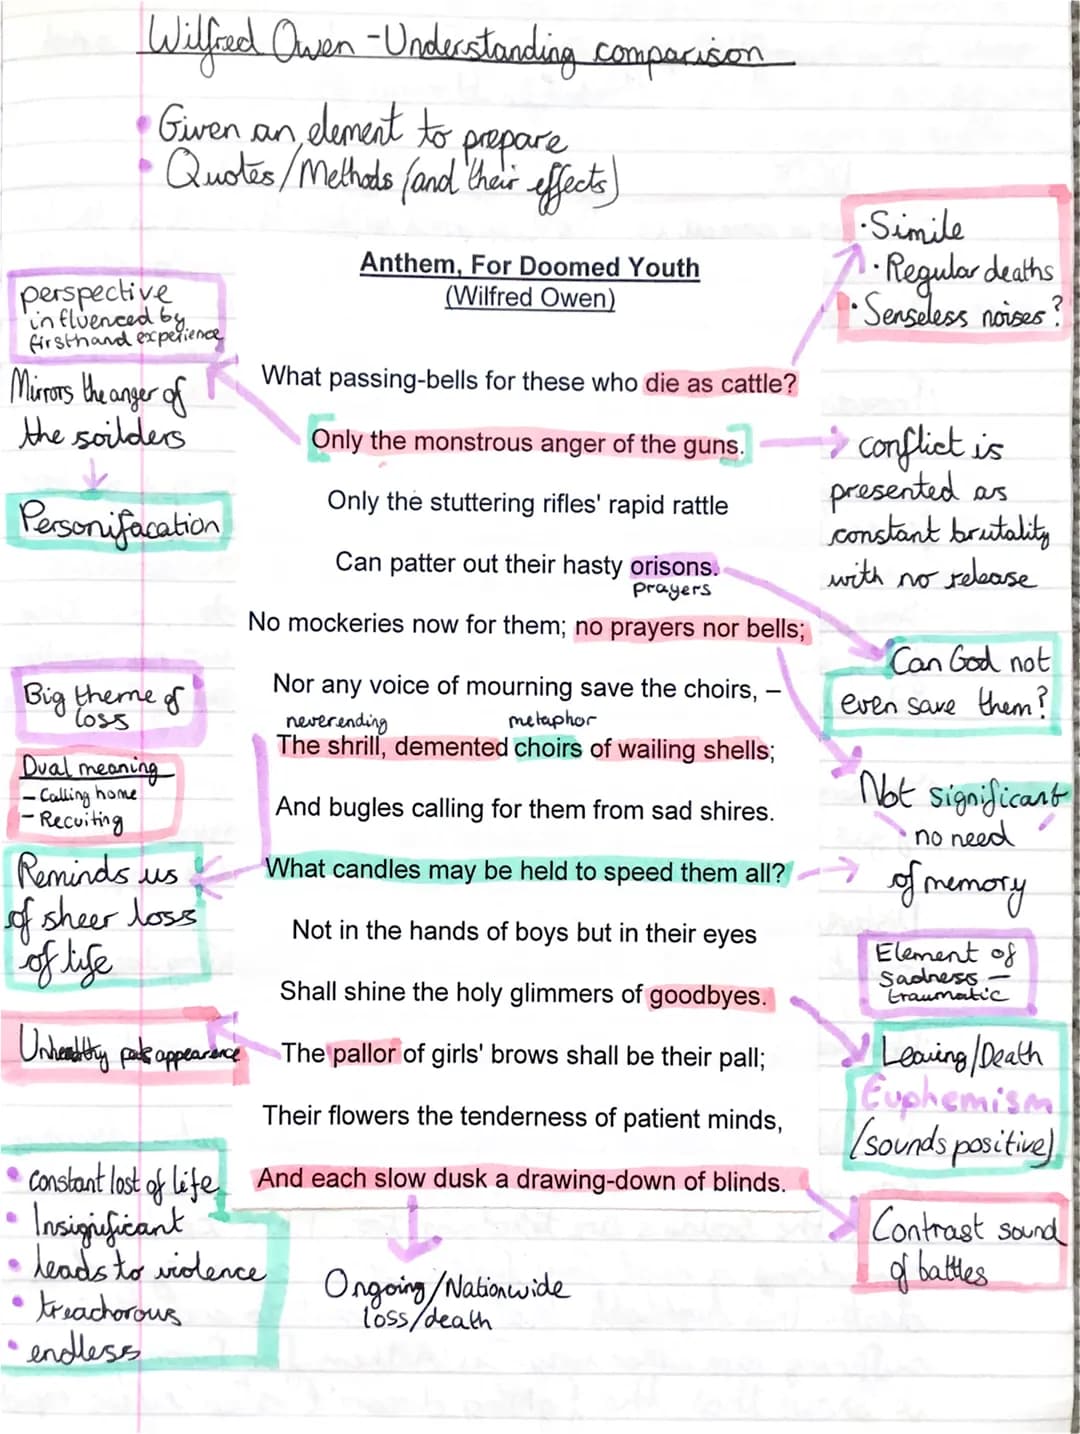 Wilfred Owen - Understanding comparison
• Given an element to prepare
• Quotes/Methods (and their effects)
Anthem, For Doomed Youth
(Wilfred Owen)
• Simile
• Regular deaths
• Senseless noises?
perspective
influenced by
firsthand experience
What passing-bells for these who die as cattle?
Mirrors the anger of
the soilders
Personifacation
[Only the monstrous anger of the guns.]
conflict is
presented as
constant brutality
with no release
Only the stuttering rifles' rapid rattle
Can patter out their hasty orisons.
prayers
No mockeries now for them; no prayers nor bells;
Can God not
even save them?
Nor any voice of mourning save the choirs, –
Big theme of
loss
neverending
metaphor
The shrill, demented choirs of wailing shells;
Dual meaning
- Calling home
- Recuiting
Not significant
no need
of memory
And bugles calling for them from sad shires.
What candles may be held to speed them all?
Reminds us
of sheer loss
of life
Not in the hands of boys but in their eyes
Element of
sadness -
traumatic
Shall shine the holy glimmers of goodbyes.
Leaving/Death
Euphemism
(sounds positive)
Unhealthy pale appearance
The pallor of girls' brows shall be their pall;
Their flowers the tenderness of patient minds,
And each slow dusk a drawing-down of blinds.
Contrast sound
of battles
• constant lost of life
• Insignificant
• leads to violence
• treachorous
• endless
Ongoing/Nationwide
loss/death